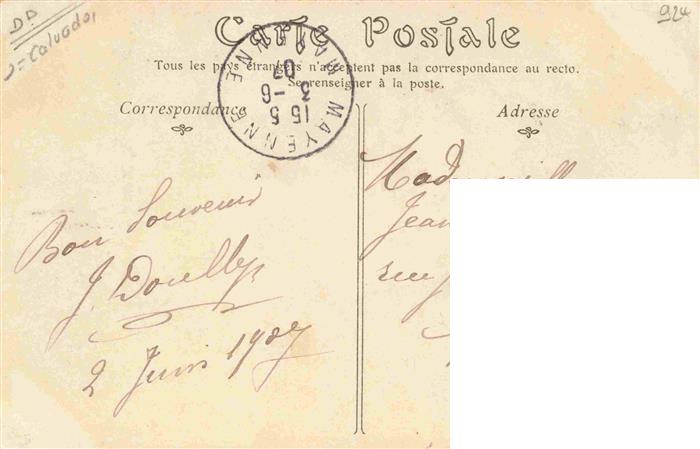 DD
Calvados
924
Carte Postale
Tous les pays étrangers n'acceptent pas la correspondance au recto.
Se renseigner à la poste.
Correspondance
Adresse
MAYENNE MAYENNE
15 5
3 -6
07
Bon Souvenir
2 Juin 1907
Jean
rue